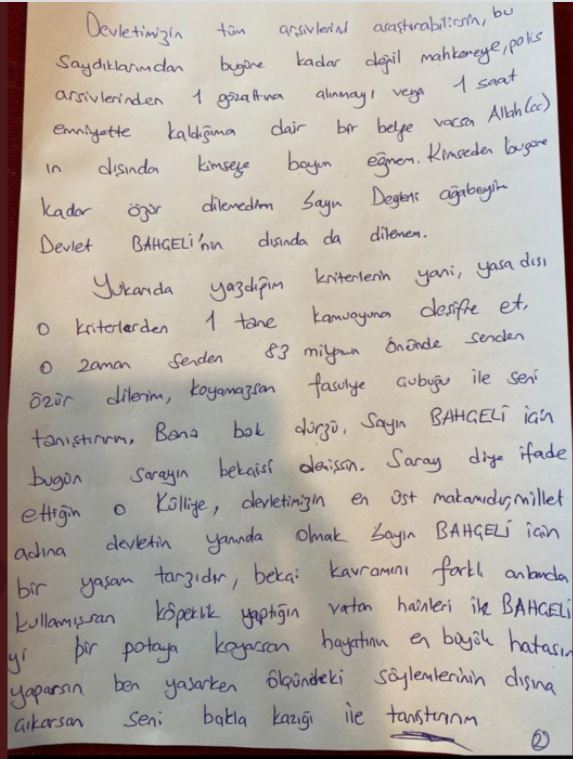 Devletimizin tüm arşivlerini araştırabilirsin, bu
saydıklarımdan bugüne kadar değil mahkemeye, polis
arşivlerinden 1 gözaltına alınmayı veya 1 saat
emniyette kaldığıma dair bir belge varsa Allah (cc)
ın dışında kimseye boyun eğmem. Kimseden bugüne
kadar özür dilemedim Sayın Değerli ağabeyim
Devlet BAHÇELİ'nin dışında da dilemem.
Yukarıda yazdığım kriterlerin yani, yasa dışı
o kriterlerden 1 tane kamuoyuna desifre et,
o zaman senden 83 milyonun önünde senden
özür dilerim, koyamazsan fasulye çubuğu ile seni
tanıştırırım, Bana bak dürzü, Sayın BAHÇELİ için
bugün sarayın bekçisi demişsin. Saray diye ifade
ettiğin o Külliye, devletimizin en üst makamıdır, millet
adına devletin yanında olmak Sayın BAHÇELİ için
bir yaşam tarzıdır, bekçi kavramını farklı anlamda
kullanmışsan köpeklik yaptığın vatan hainleri ile BAHÇELİ
yi bir potaya koyarsan hayatının en büyük hatasın
yaparsın ben yaşarken ölçündeki söylemlerinin dışına
çıkarsan seni bakla kazığı ile tanıştırırım
2